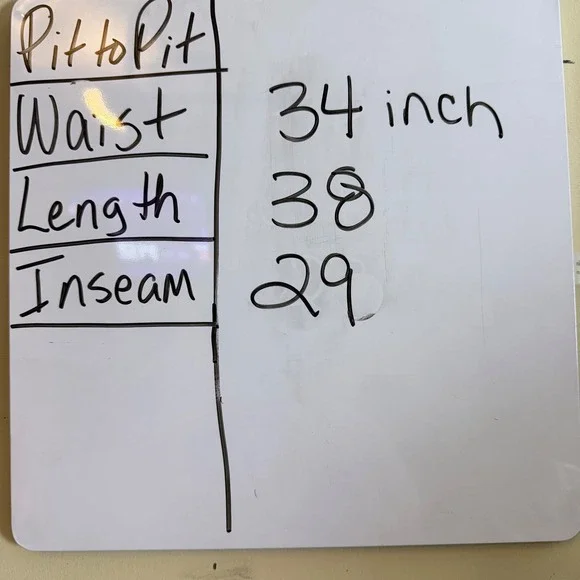 Pit to Pit
Waist 34 inch
Length 38
Inseam 29